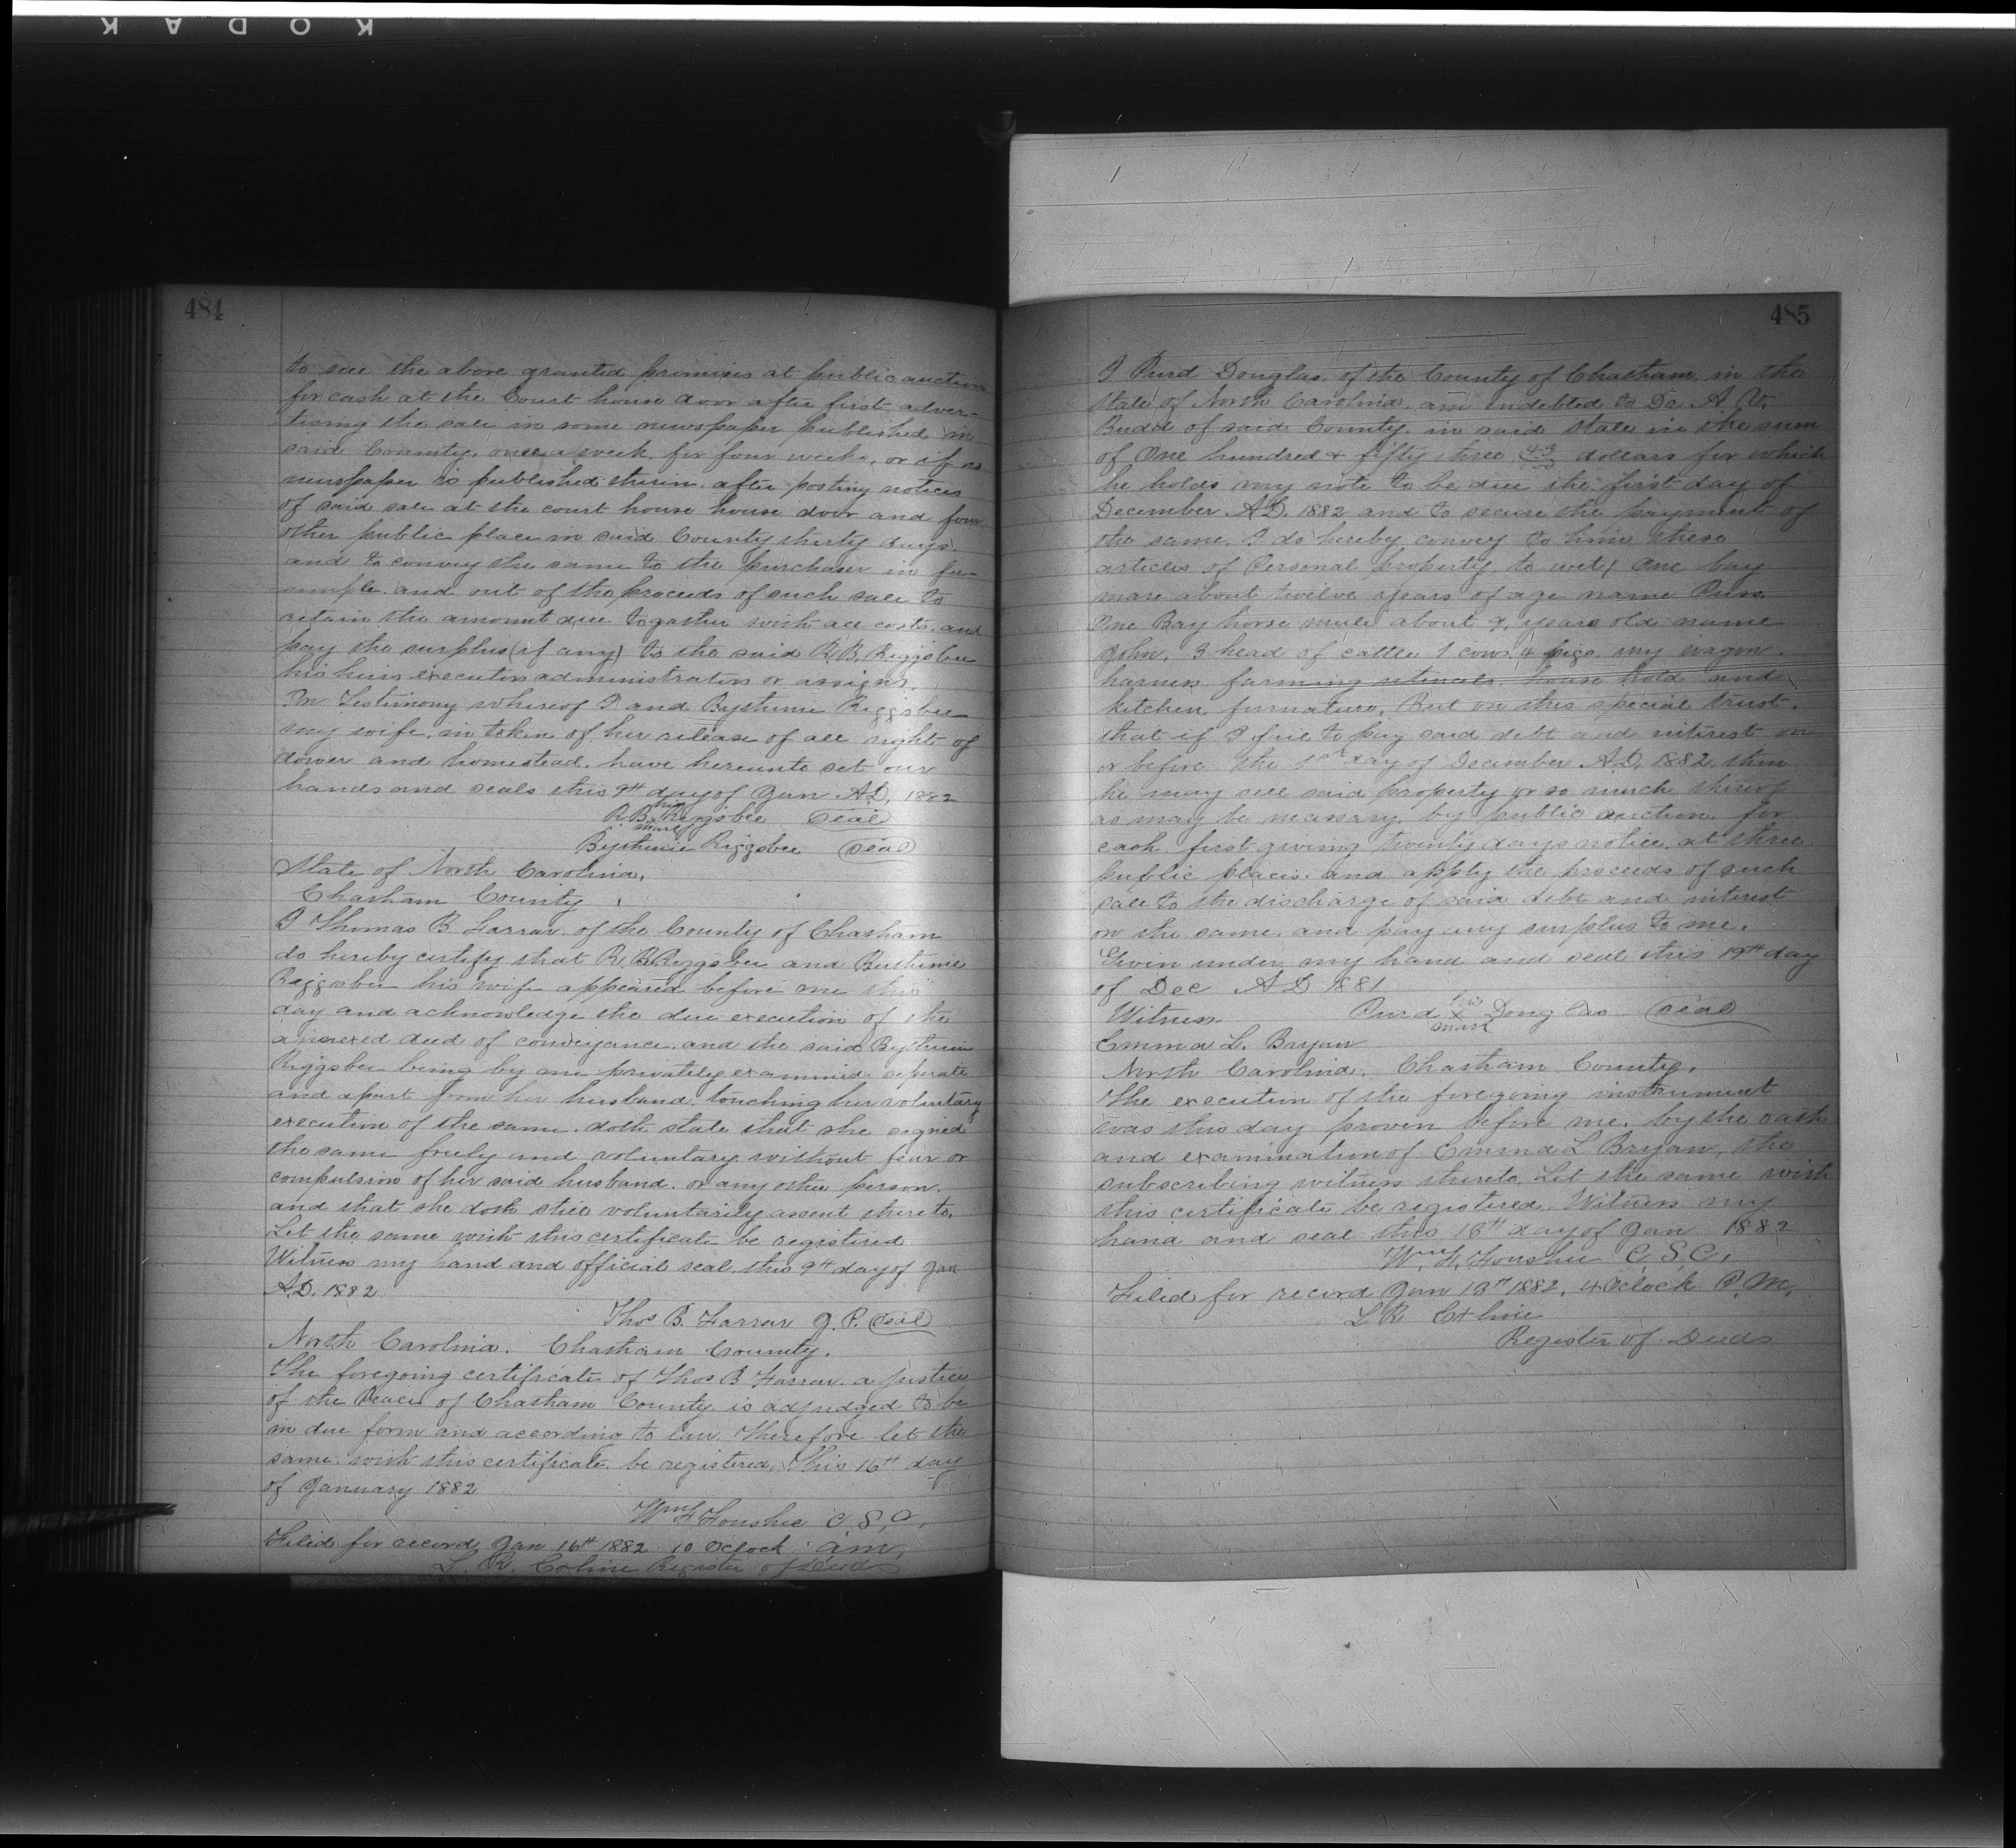 KODAK
484
to sell the above granted premises at public auction
for cash at the Court house door after first adver-
tising the sale in some newspaper published in
said County, once a week for four weeks, or if no
newspaper is published therein after posting notices
of said sale at the court house house door and four
other public place in said County thirty days.
and to convey the same to the purchaser in fee-
simple. and out of the proceeds of such sale to
retain the amount due togather with all costs. and
pay the surplus (if any) to the said R. B. Riggsbee
his heirs executors administrators or assigns.
In Testimony whereof I and Bythenie Riggsbee
my wife, in token of her release of all right of
dower and homestead. have hereunto set our
hands and seals this 9th day of Jan A.D. 1882
R. B. his mark Riggsbee Seal
Bythenie Riggsbee Seal
State of North Carolina,
Chatham County,
I Thomas B. Farrar. of the County of Chatham
do hereby certify that R. B. Riggsbee and Buthenie
Riggsbee his wife appeared before me this
day and acknowledge the due execution of the
annexed deed of conveyance. and the said Bythenie
Riggsbee being by me privately examined. seperate
and apart from her husband. touching her voluntary
execution of the same. doth state that she signed
the same freely and voluntary without fear or
compulsion of her said husband. or any other person.
and that she doth still voluntarily assent thereto.
Let the same with this certificate be registered
Witness my hand and official seal this 9th day of Jan
A.D. 1882
Thos B. Farrar J. P. Seal
North Carolina. Chatham County.
The foregoing certificate of Thos B Farrar. a justice
of the Peace of Chatham County is adjudged to be
in due form and according to law. Therefore let the
same. with this certificate. be registered, This 16th day
of January 1882
Wm F Foushee C. S. C.
Filed for record Jan 16th 1882 10 Oclock am.
L. R. Exline Register of Deeds
485
I Purd Douglas. of the County of Chatham, in the
state of North Carolina. am indebted to Dr A. V.
Budd of said County. in said State in the sum
of One hundred & fifty three 43/00 dollars for which
he holds my note to be due the first day of
December A.D. 1882 and to secure the payment of
the same. I do hereby convey to him these
articles of Personal property, to wit; One bay
mare about twelve years of age name Puss.
One Bay horse mule about 9. years old name
John. 3 head of cattle 1 cow. 4 pigs. my wagon.
harness farming utencels, house hold and
kitchen furnature, But on this special trust.
that if I fail to pay said debt and interest on
or before the 1st day of December A.D. 1882. then
he may sell said property or so much thereof
as may be necissary. by public auction for
cash. first giving twenty days notice, at three
public places. and apply the proceeds of such
sale to the discharge of said debt and interest
on the same. and pay any surplus to me.
Given under my hand and seal this 19th day
of Dec A D 1881
Witness Purd his X mark Douglas Seal
Emma L. Bryan
North Carolina. Chatham County.
The execution of the foregoing instrument
was this day proven before me. by the oath
and examination of Emma L Bryan, the
subscribing witness thereto. Let the same with
this certificate be registered. Witness my
hand and seal this 18th day of Jan 1882
Wm F. Foushee C. S. C.
Filed for record Jan 18th 1882. 4 Oclock P.M.
L R Exline
Register of Deeds